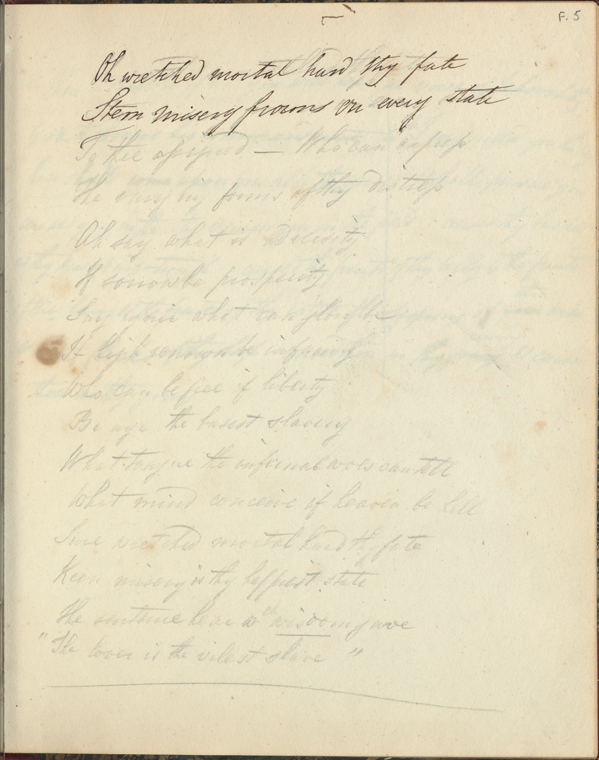 F. 5
Oh wretched mortal hard thy fate
Stern misery frowns on every state
To thee opposed — Who can express
The varying forms of thy distress
Oh say what is adversity
If sorrow be prosperity
Say what can glory be
If high renown be infamy
Who can be free if liberty
Be aye the basest slavery
What tongue the infernal woes can tell
What mind conceive if heaven be hell
Sure wretched mortal hard thy fate
Keen misery is thy happiest state
The sentence hear wisdom gave
"The lover is the vilest slave"